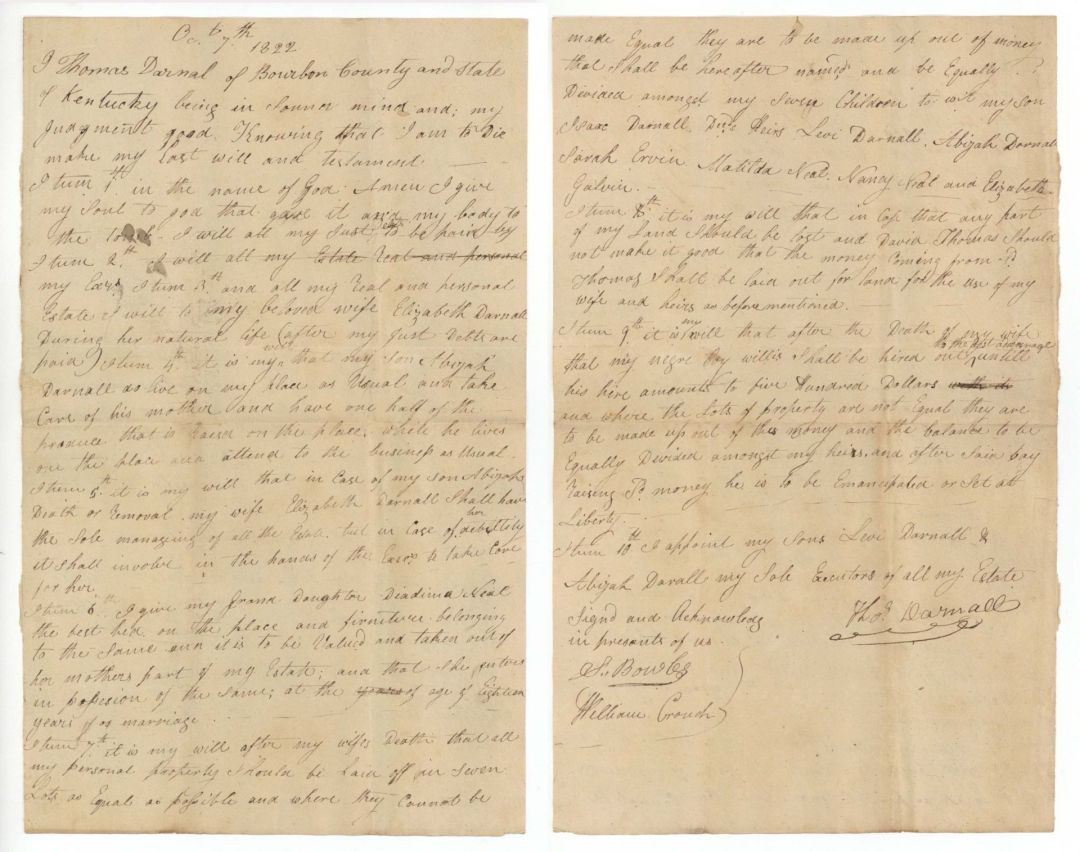 Oct 7th 1822
I Thomas Darnal of Bourbon County and State
of Kentucky being in Sound mind and; my
Judgment good. Knowing that I am to Die
make my Last will and testament.
Item 1st in the name of God. Amen I give
my Soul to god that gave it and my body to
the I will all my Just debts to be paid by
Item 2th I will all my Estate Real and personal
my Exrs Item 3th and all my Real and personal
Estate I will to my beloved wife Elizabeth Darnall
During her natural life (after my Just Debts are
paid) Item 4th it is my will that my Son Abijah
Darnall as live on my place as Usual and take
Care of his mother and have one half of the
produce that is Raisd on the place, while he lives
on the place and attend to the business as Usual.
Item 5th it is my will that in Case of my son Abijahs
Death or Removal my wife Elizabeth Darnall Shall have
the Sole managing of all the Estate. but in Case of her debility
it Shall involve in the hands of the Excrs to take Care
for her
Item 6th I give my Grand Daughter Diadima Neal
the best bed on the place and firniture belonging
to the Same and it is to be Valued and taken out of
her mothers part of my Estate; and that She enters
in possesion of the Same; at the years of age of Eighteen
years of or marriage
Item 7th it is my will after my wifes Death that all
my personal property Should be Laid off in Seven
Lots as Equal as possible and where they Cannot be
made Equal they are to be made up out of money
that Shall be hereafter named and be Equally
Divided amongst my Seven Children to wit my Son
Isaac Darnall, Decs Heirs Levi Darnall. Abijah Darnal
Sarah Ervin Matilda Neal. Nancy Neal and Elizabeth
Galvin.
Item 8th it is my will that in Case that any part
of my Land Should be lost and David Thomas Should
not make it good that the money Coming from Sd
Thomas Shall be laid out for land for the use of my
wife and heirs as before mentioned.
Item 9th it is my will that after the Death of my wife
that my negro boy willis Shall be hired out to the best advantage untill
his here amounts to five Hundred Dollars with its
and where the Lots of property are not Equal they are
to be made up out of this money and the balance to be
Equally Divided amongst my heirs. and after Said boy
Raising Sd money he is to be Emancipated or Set at
Liberty.
Item 10th I appoint my Sons Levi Darnall &
Abijah Darall my Sole Executors of all my Estate
Signd and Acknowledg
in presents of us
Thos Darnall
S. Bowles
William Crouch